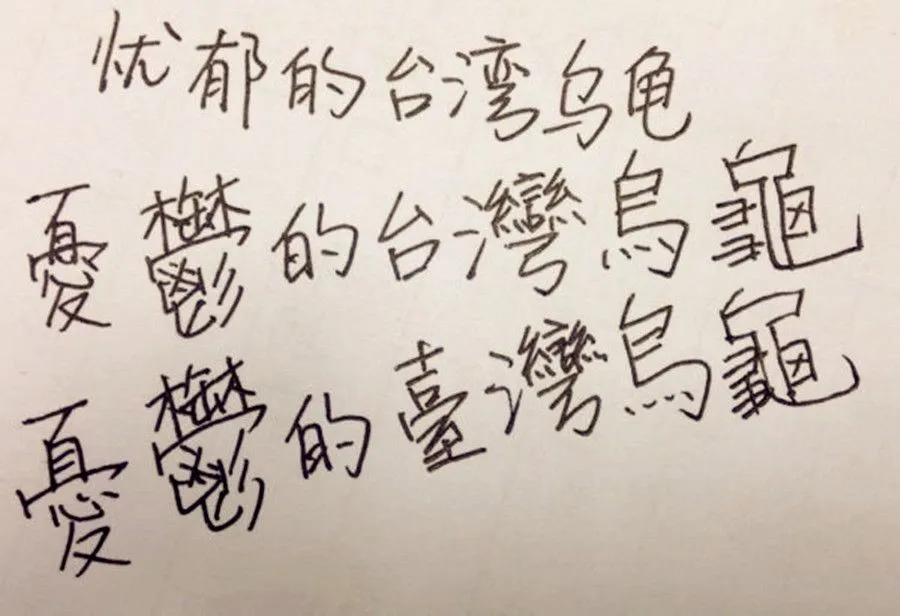 忧郁的台湾乌龟
憂鬱的台灣烏龜
憂鬱的臺灣烏龜